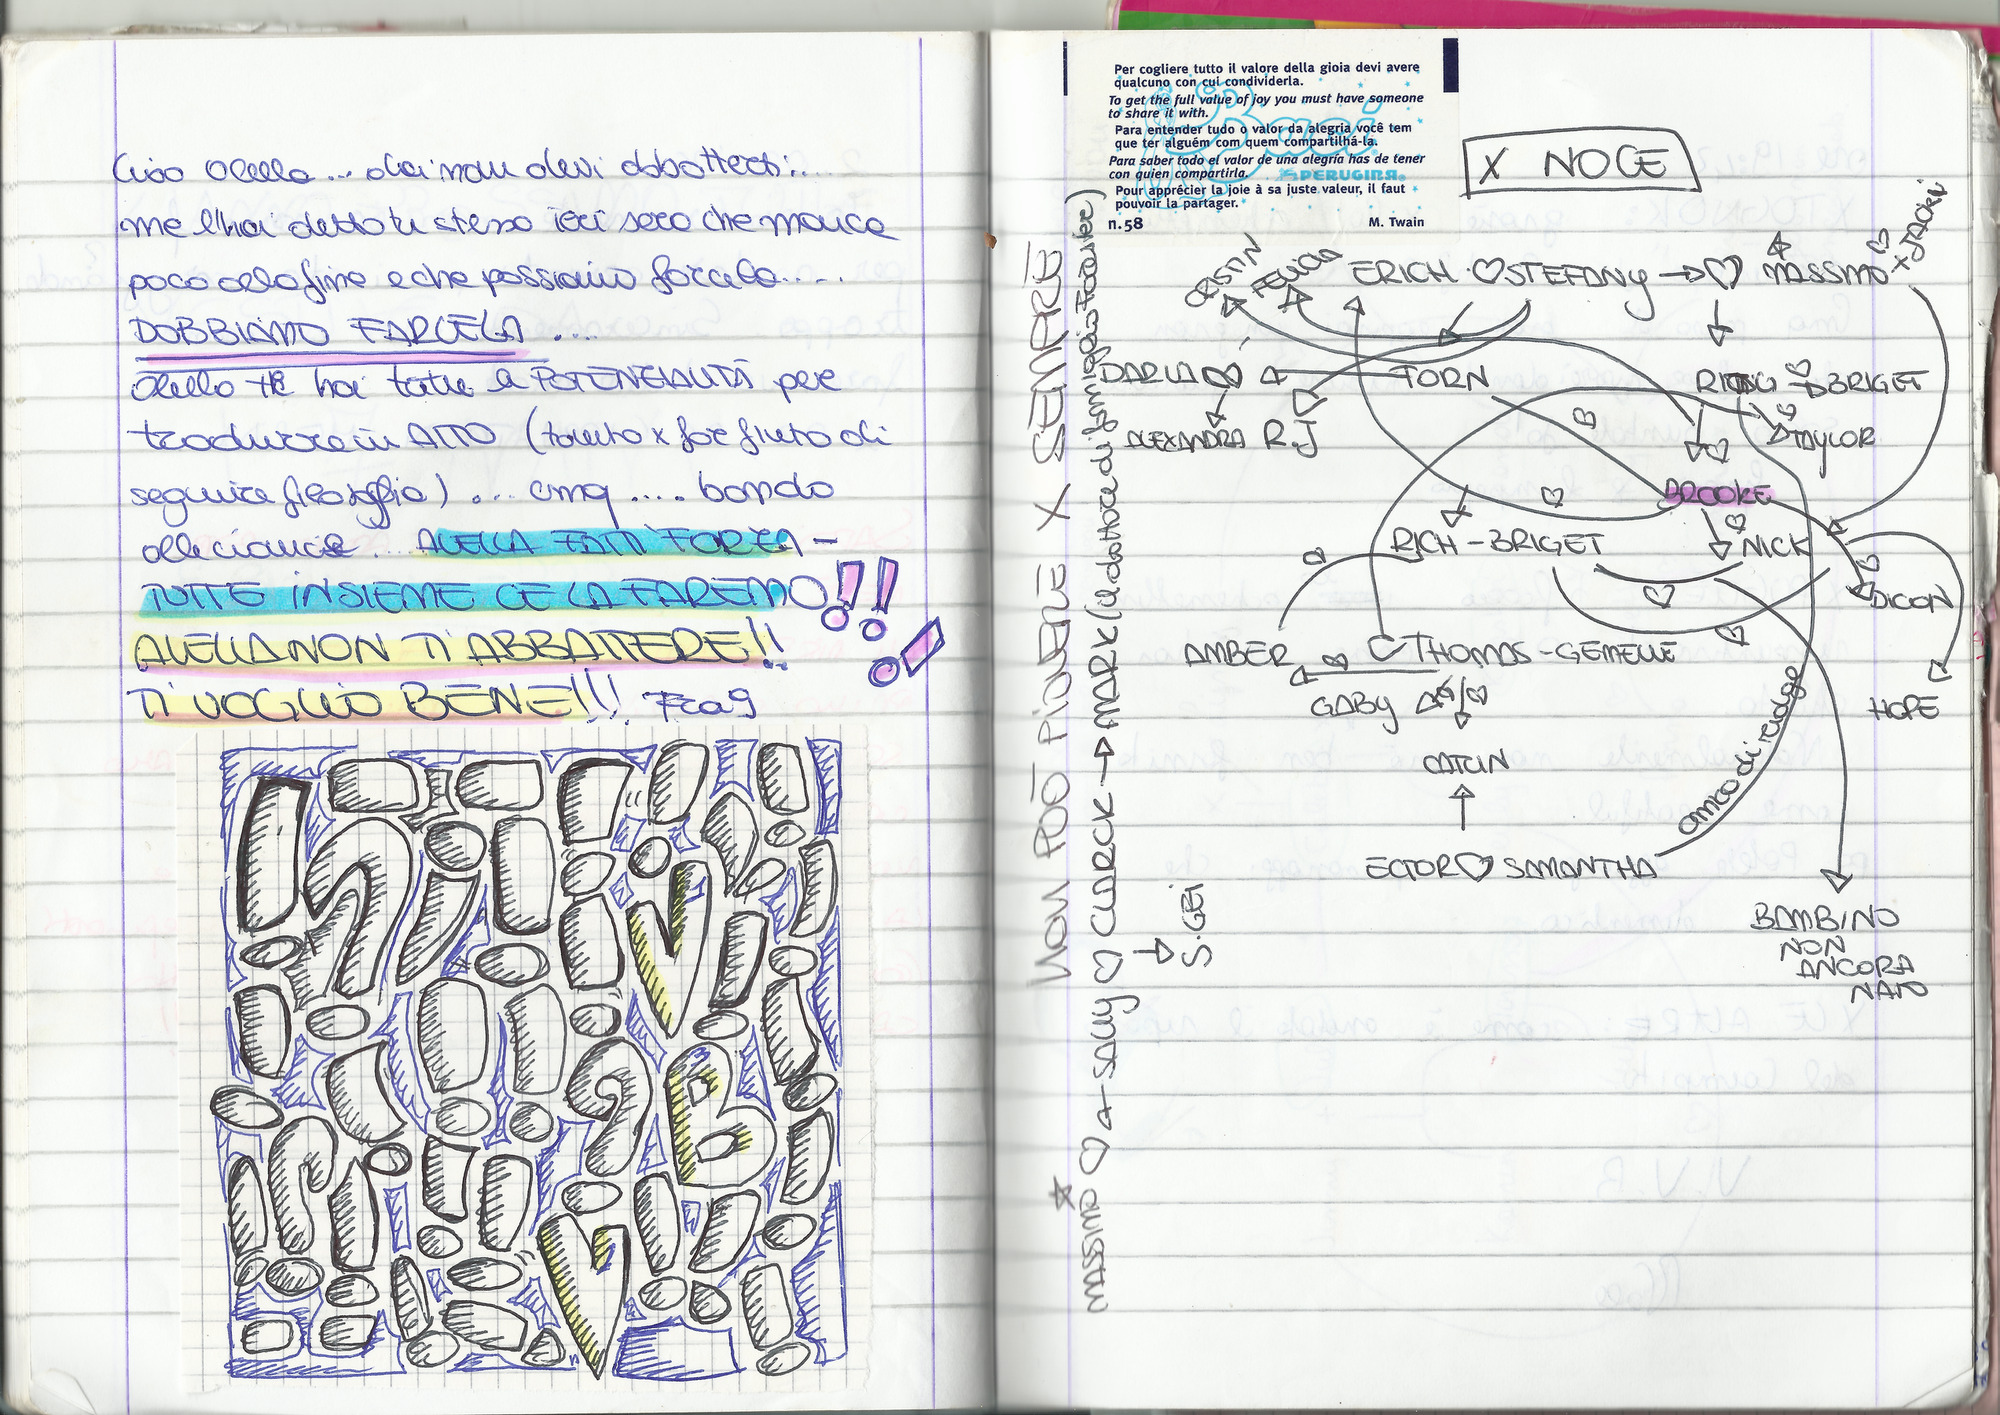 Ciao Alella... dai non devi abbatterti....
me l'hai detto tu stessa ieri sera che manca
poco alla fine e che possiamo farcela.....
DOBBIAMO FARCELA ...
Alella tu hai tutte le POTENZIALITÀ per
tradurre in ATTO (tanto x far finta di
seguire filosofia) ... cmq .... bando
alle ciance... ALELLA FATTI FORZA -
TUTTE INSIEME CE LA FAREMO!!!
ALELLA NON TI ABBATTERE!!
TI VOGLIO BENE!!!
!?!
TVB
Per cogliere tutto il valore della gioia devi avere
qualcuno con cui condividerla.
To get the full value of joy you must have someone
to share it with.
Para entender tudo o valor da alegria você tem
que ter alguém com quem compartilhá-la.
Para saber todo el valor de una alegría has de tener
con quien compartirla.
Pour apprécier la joie à sa juste valeur, il faut
pouvoir la partager.
n.58 M. Twain
Baci
PERUGINA®
X NOCE
NON PUÒ PIOVERE X SEMPRE
MASSIMO ♡ ← SALLY ♡ CLARCK → MARK (il dottore di famiglia Forrester)
S. GEI
CRISTIN FELICIA ERICH ♡ STEFANY → ♡ MASSIMO x JACKI
DARLA ♡ TORN RIDG ♡ BRIGET
ALEXANDRA R.J TAYLOR
BROOKE
RICH - BRIGET NICK
DICON
AMBER ♡ THOMAS - GEMELLE
GABY HOPE
CATLIN
amico di ridge
ECTOR ♡ SAMANTHA
BAMBINO
NON
ANCORA
NATO